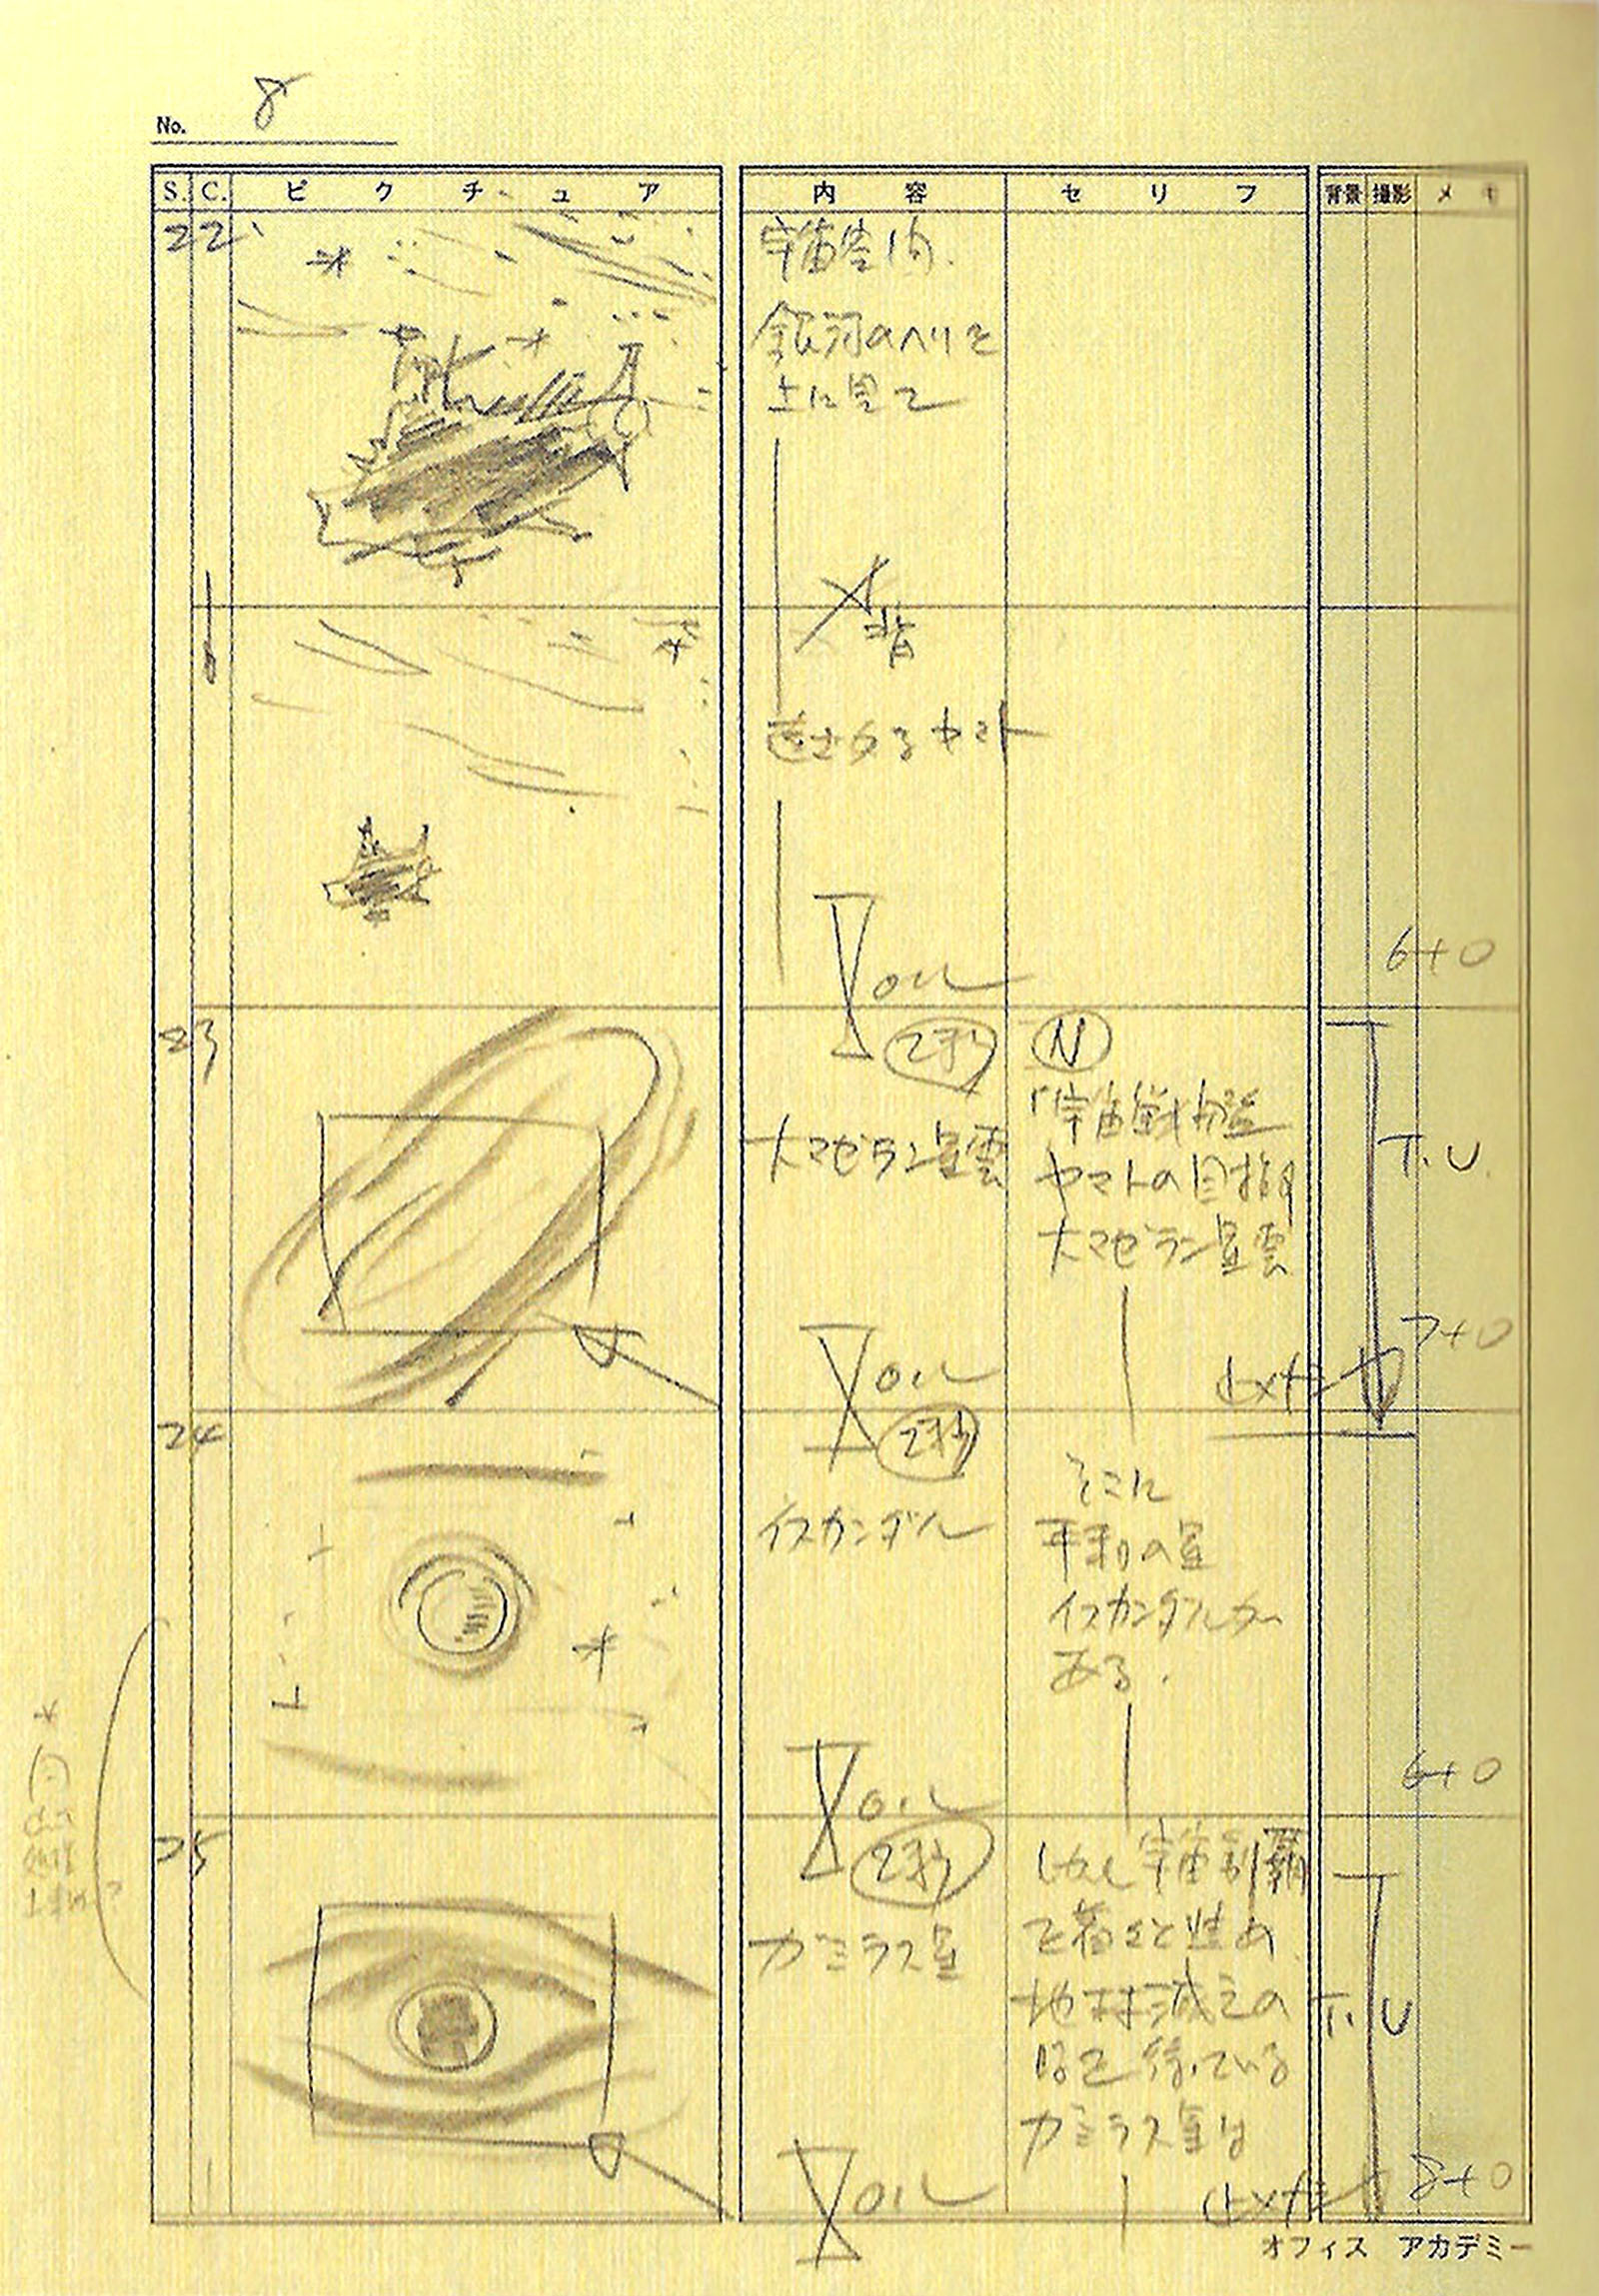 No. 8
S. C. ピクチュア 内容 セリフ 背景 撮影 メモ
22
宇宙空間.
銀河のヘリを
上に見て
背
遠ざかるヤマト
6+0
O.L
2秒
23
大マゼラン星雲
N
「宇宙戦艦
ヤマトの目指す
大マゼラン星雲
T.U.
7+0
O.L
2秒
24
イスカンダル
そこに
平和の星
イスカンダルが
ある.
6+0
O.L
2秒
25
ガミラス星
しかし宇宙制覇
を着々と進め
地球滅亡の
日を待っている
ガミラス星は
T.U
8+0
O.L
オフィス アカデミー